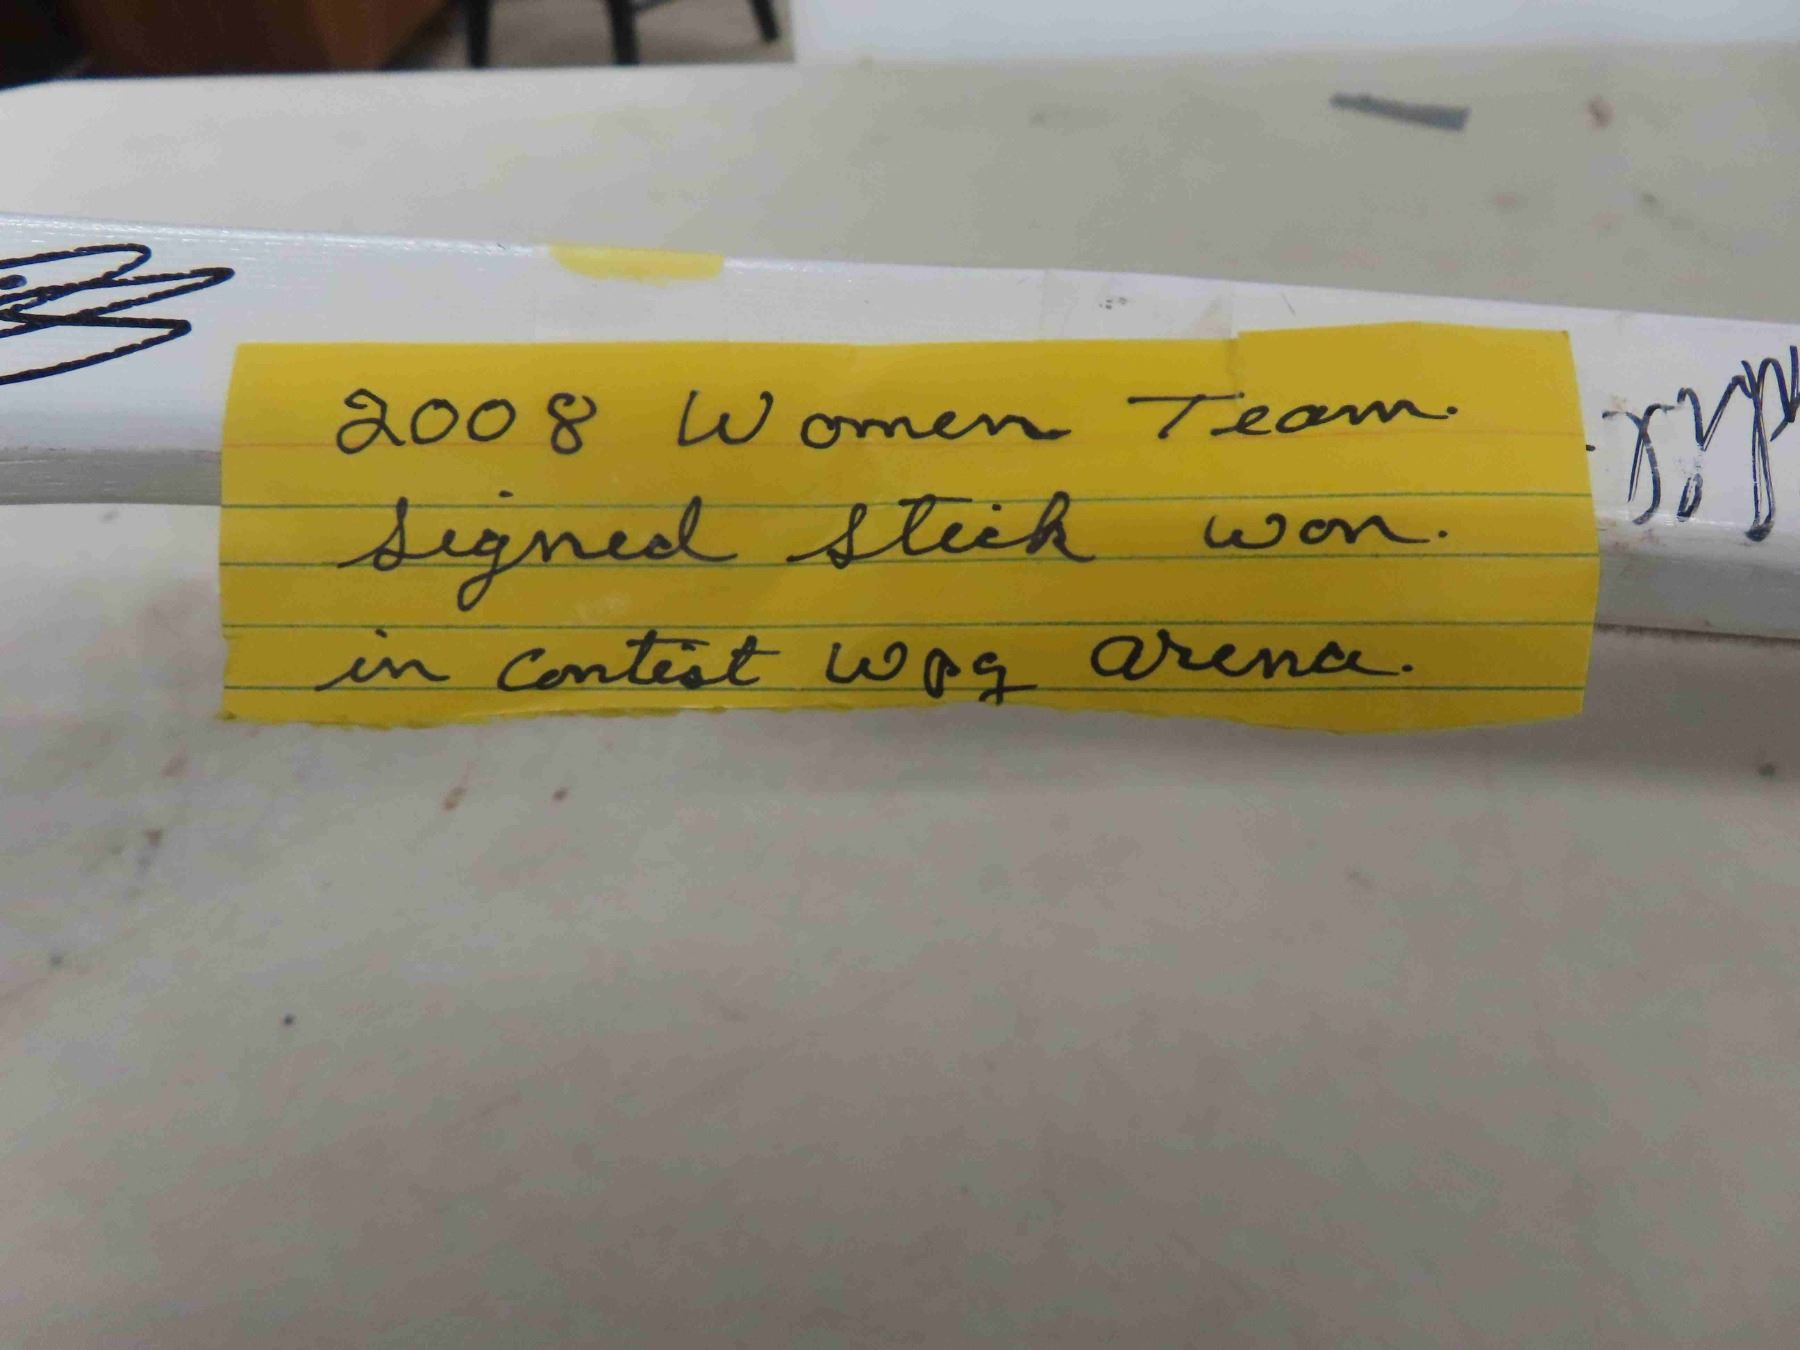 2008 Women Team.
signed stick won.
in contest wpg arena.